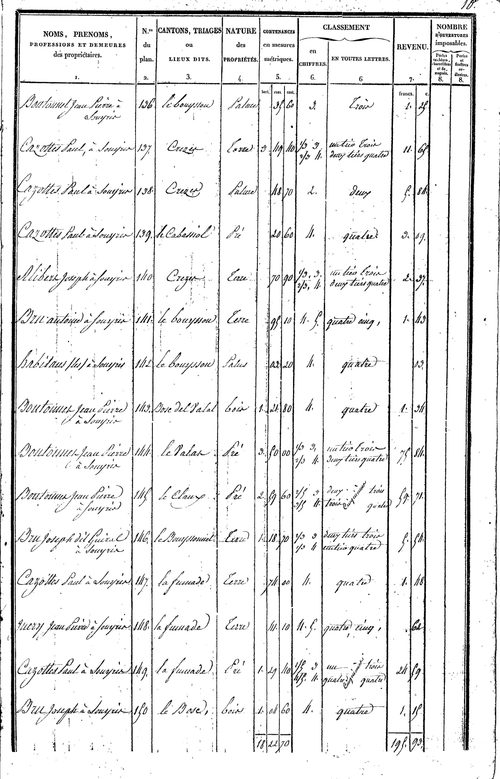 NOMS, PRENOMS,
PROFESSIONS ET DEMEURES
des propriétaires.
1.
N.os
du
plan.
2.
CANTONS, TRIAGES
ou
LIEUX DITS.
3.
NATURE
des
PROPRIÉTÉS.
4.
CONTENANCES
en mesures
métriques.
5.
CLASSEMENT
en
CHIFFRES.
6.
EN TOUTES LETTRES.
6.
REVENU.
7.
NOMBRE
D'OUVERTURES
imposables.
8.
8.
francs. c.
Boutonnet Jean Pierre à Souyrin 136. le bouysson Pature 35 60 3. trois 1. 25
Cazottes Paul, à Souyrin 137. Cruzer Terre 3. 49 40 1/3 3. un tiers trois
2/3 4. deux tiers quatre 11. 65
Cazottes Paul à Souyrin 138. Cruzer Pature 48 70 2. deux 5. 84
Cazottes Paul à Souyrin 139. le Cabassiol Pré 20 60 4. quatre 3. 09
Alibert Joseph à Souyrin 140. Cruzer Terre 70 90 1/3, 3. un tiers trois
2/3, 4. deux tiers quatre 2. 37
Bru antoine à Souyrin 141. le bouysson Terre 95 10 4. 5. quatre cinq, 1. 43
habitans (les) à Souyrin 142. le bouysson Patus 02 20 4. quatre 03
Boutonnet Jean Pierre
à Souyrin 143. Bosc del Valat bois 1. 24 80 4. quatre 1. 34
Boutonnet Jean Pierre
à Souyrin 144. le Valat Pré 3. 50 00 1/3 3. un tiers trois
2/3 4. deux tiers quatre 75. 84
Boutonnet Jean Pierre
à Souyrin 145. le Claux Pré 2. 59 60 2/5 3 deux trois
3/5 4. trois quatre 59. 71
Bru Joseph à Souyrin 146. le Bouyssounet Terre 1. 18 70 2/3 3 deux tiers trois
1/3 4 un tiers quatre 5. 54
Cazottes Paul à Souyrin 147. la fumade Terre 74 00 4. quatre 1. 48
Jean Pierre à Souyrin 148. la fumade Terre 41 10 4. 5. quatre, cinq, 62
Cazottes Paul à Souyrin 149. la fumade Pré 1. 29 40 1/5 3 un trois
4/5 4. quatre quatre 24. 59
Bru Joseph à Souyrin 150 le Bosc, bois 1. 04 60 4. quatre 1. 15
18 44 70 195. 93